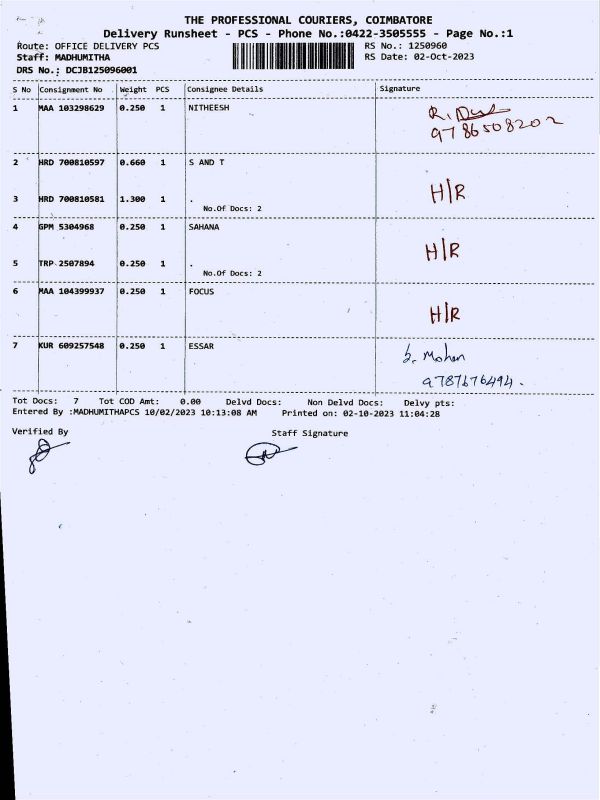 THE PROFESSIONAL COURIERS, COIMBATORE
Delivery Runsheet - PCS - Phone No.:0422-3505555 - Page No.:1
Route: OFFICE DELIVERY PCS RS No.: 1250960
Staff: MADHUMITHA RS Date: 02-Oct-2023
DRS No.: DCJB125096001
S No Consignment No Weight PCS Consignee Details Signature
1 MAA 103298629 0.250 1 NITHEESH
9786508202
2 HRD 700810597 0.660 1 S AND T
H/R
3 HRD 700810581 1.300 1 .
No.Of Docs: 2
4 GPM 5304968 0.250 1 SAHANA
H/R
5 TRP 2507894 0.250 1 .
No.Of Docs: 2
6 MAA 104399937 0.250 1 FOCUS
H/R
7 KUR 609257548 0.250 1 ESSAR
Mohan
9787676494.
Tot Docs: 7 Tot COD Amt: 0.00 Delvd Docs: Non Delvd Docs: Delvy pts:
Entered By :MADHUMITHAPCS 10/02/2023 10:13:08 AM Printed on: 02-10-2023 11:04:28
Verified By Staff Signature